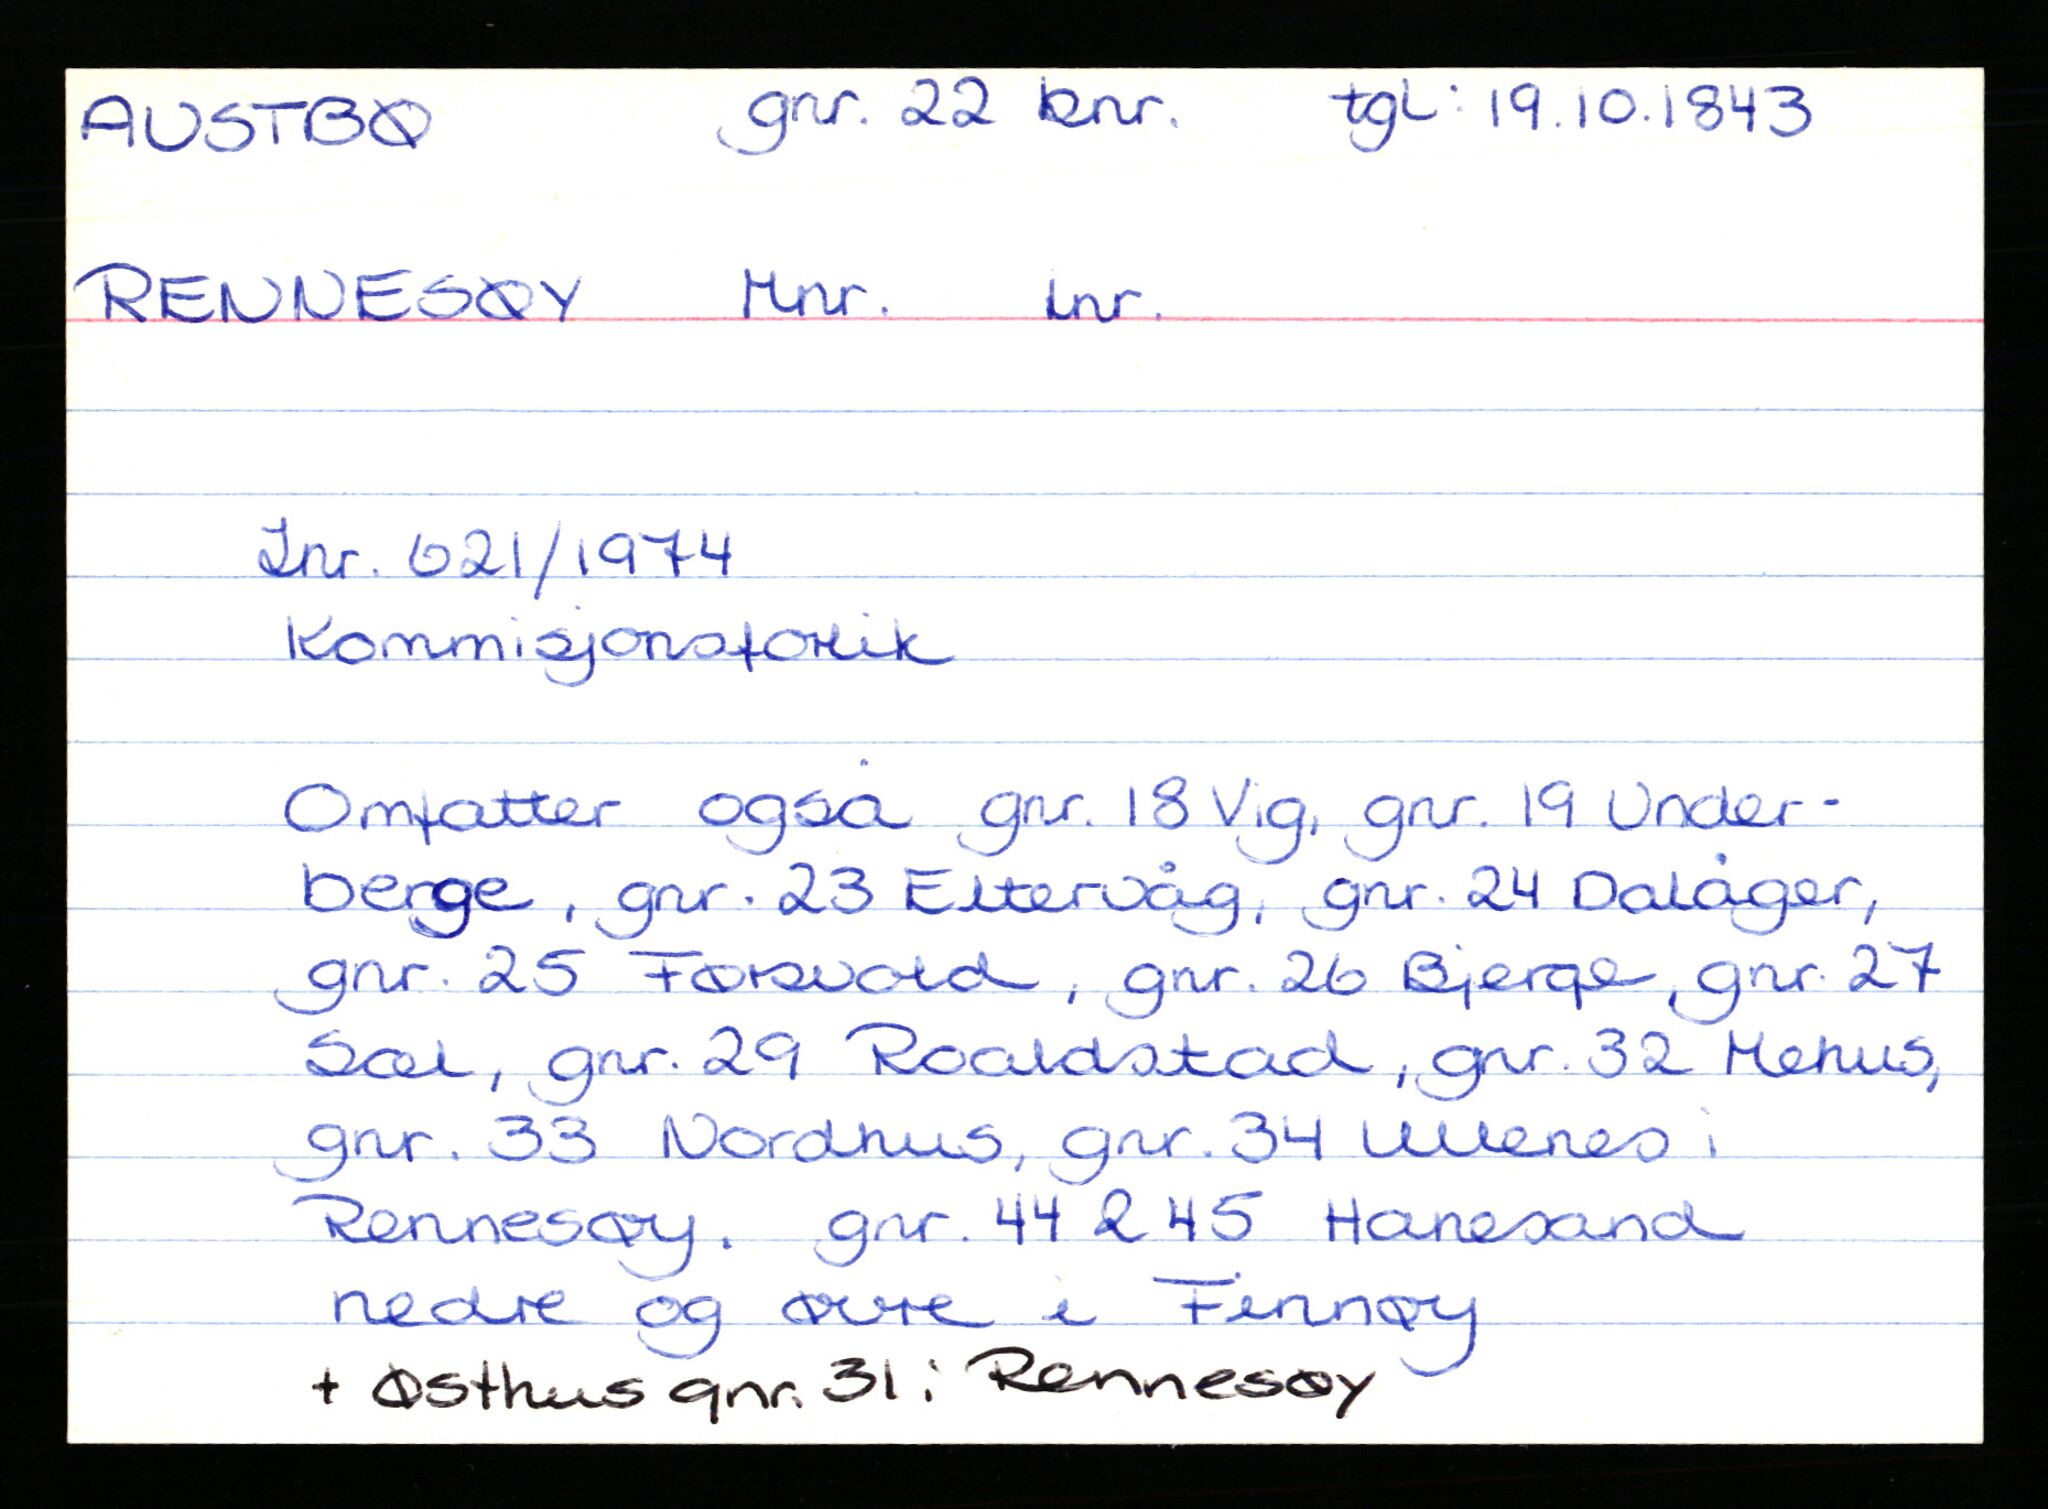 AUSTBØ gnr. 22 bnr. tgl: 19.10.1843
RENNESØY Mnr. Lnr.
Jnr. 621/1974
Kommisjonsforlik
Omfatter også gnr. 18 Vig, gnr. 19 Under-
berge, gnr. 23 Eltervåg, gnr. 24 Dalåger,
gnr. 25 Førsvold, gnr. 26 Bjerge, gnr. 27
Sæl, gnr. 29 Roaldstad, gnr. 32 Hehus,
gnr. 33 Nordhus, gnr. 34 Ullenes i
Rennesøy. gnr. 44 & 45 Hanesand
nedre og øvre i Finnøy
+ Østhus gnr. 31 i Rennesøy